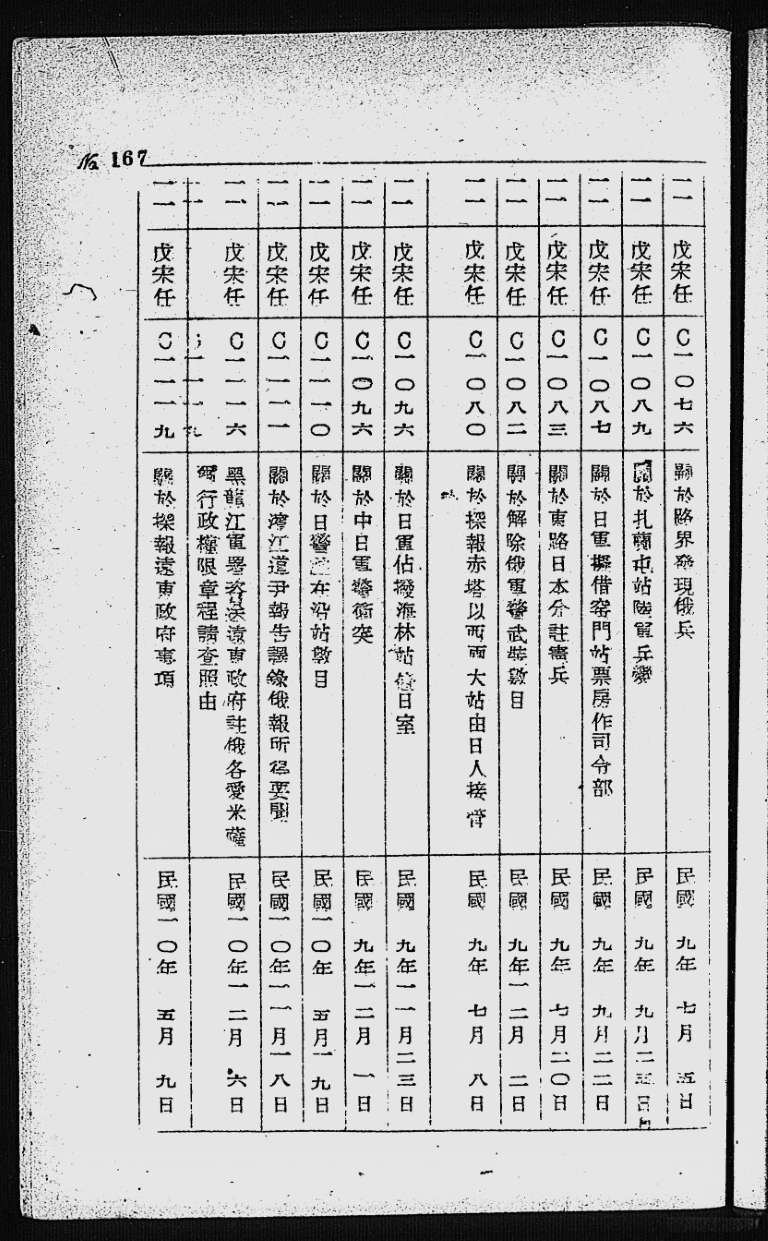 No. 167
二一 戊宋任 C一〇七六 關於路界發現俄兵 民國 九年 七月 五日
二一 戊宋任 C一〇八九 關於扎蘭屯站陸軍兵變 民國 九年 九月二五日
二一 戊宋任 C一〇八七 關於日軍擬借窰門站票房作司令部 民國 九年 九月二二日
二一 戊宋任 C一〇八三 關於東路日本分註憲兵 民國 九年 七月二〇日
二一 戊宋任 C一〇八二 關於解除俄軍警武裝數目 民國 九年一二月 二日
二一 戊宋任 C一〇八〇 關於探報赤塔以西兩大站由日人接管 民國 九年 七月 八日
二一 戊宋任 C一〇九六 關於日軍佔撥海林站 日室 民國 九年一一月二三日
二一 戊宋任 C一〇九六 關於中日軍警衝突 民國 九年一二月 一日
二一 戊宋任 C二一一〇 關於日警 在沿站數目 民國一〇年 五月一九日
二一 戊宋任 C一一二一 關於濱江道尹報告譯錄俄報所得要聞 民國一〇年一一月一八日
二一 戊宋任 C二一一六 黑龍江軍署 送遠東政府註俄各愛米薩
行政權限章程請查照由 民國一〇年一二月 六日
二一 戊宋任 C一一一九 關於探報遠東政府事項 民國一〇年 五月 九日